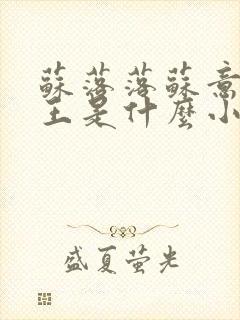 蘇落落蘇意
王是什麼小
盛夏萤光